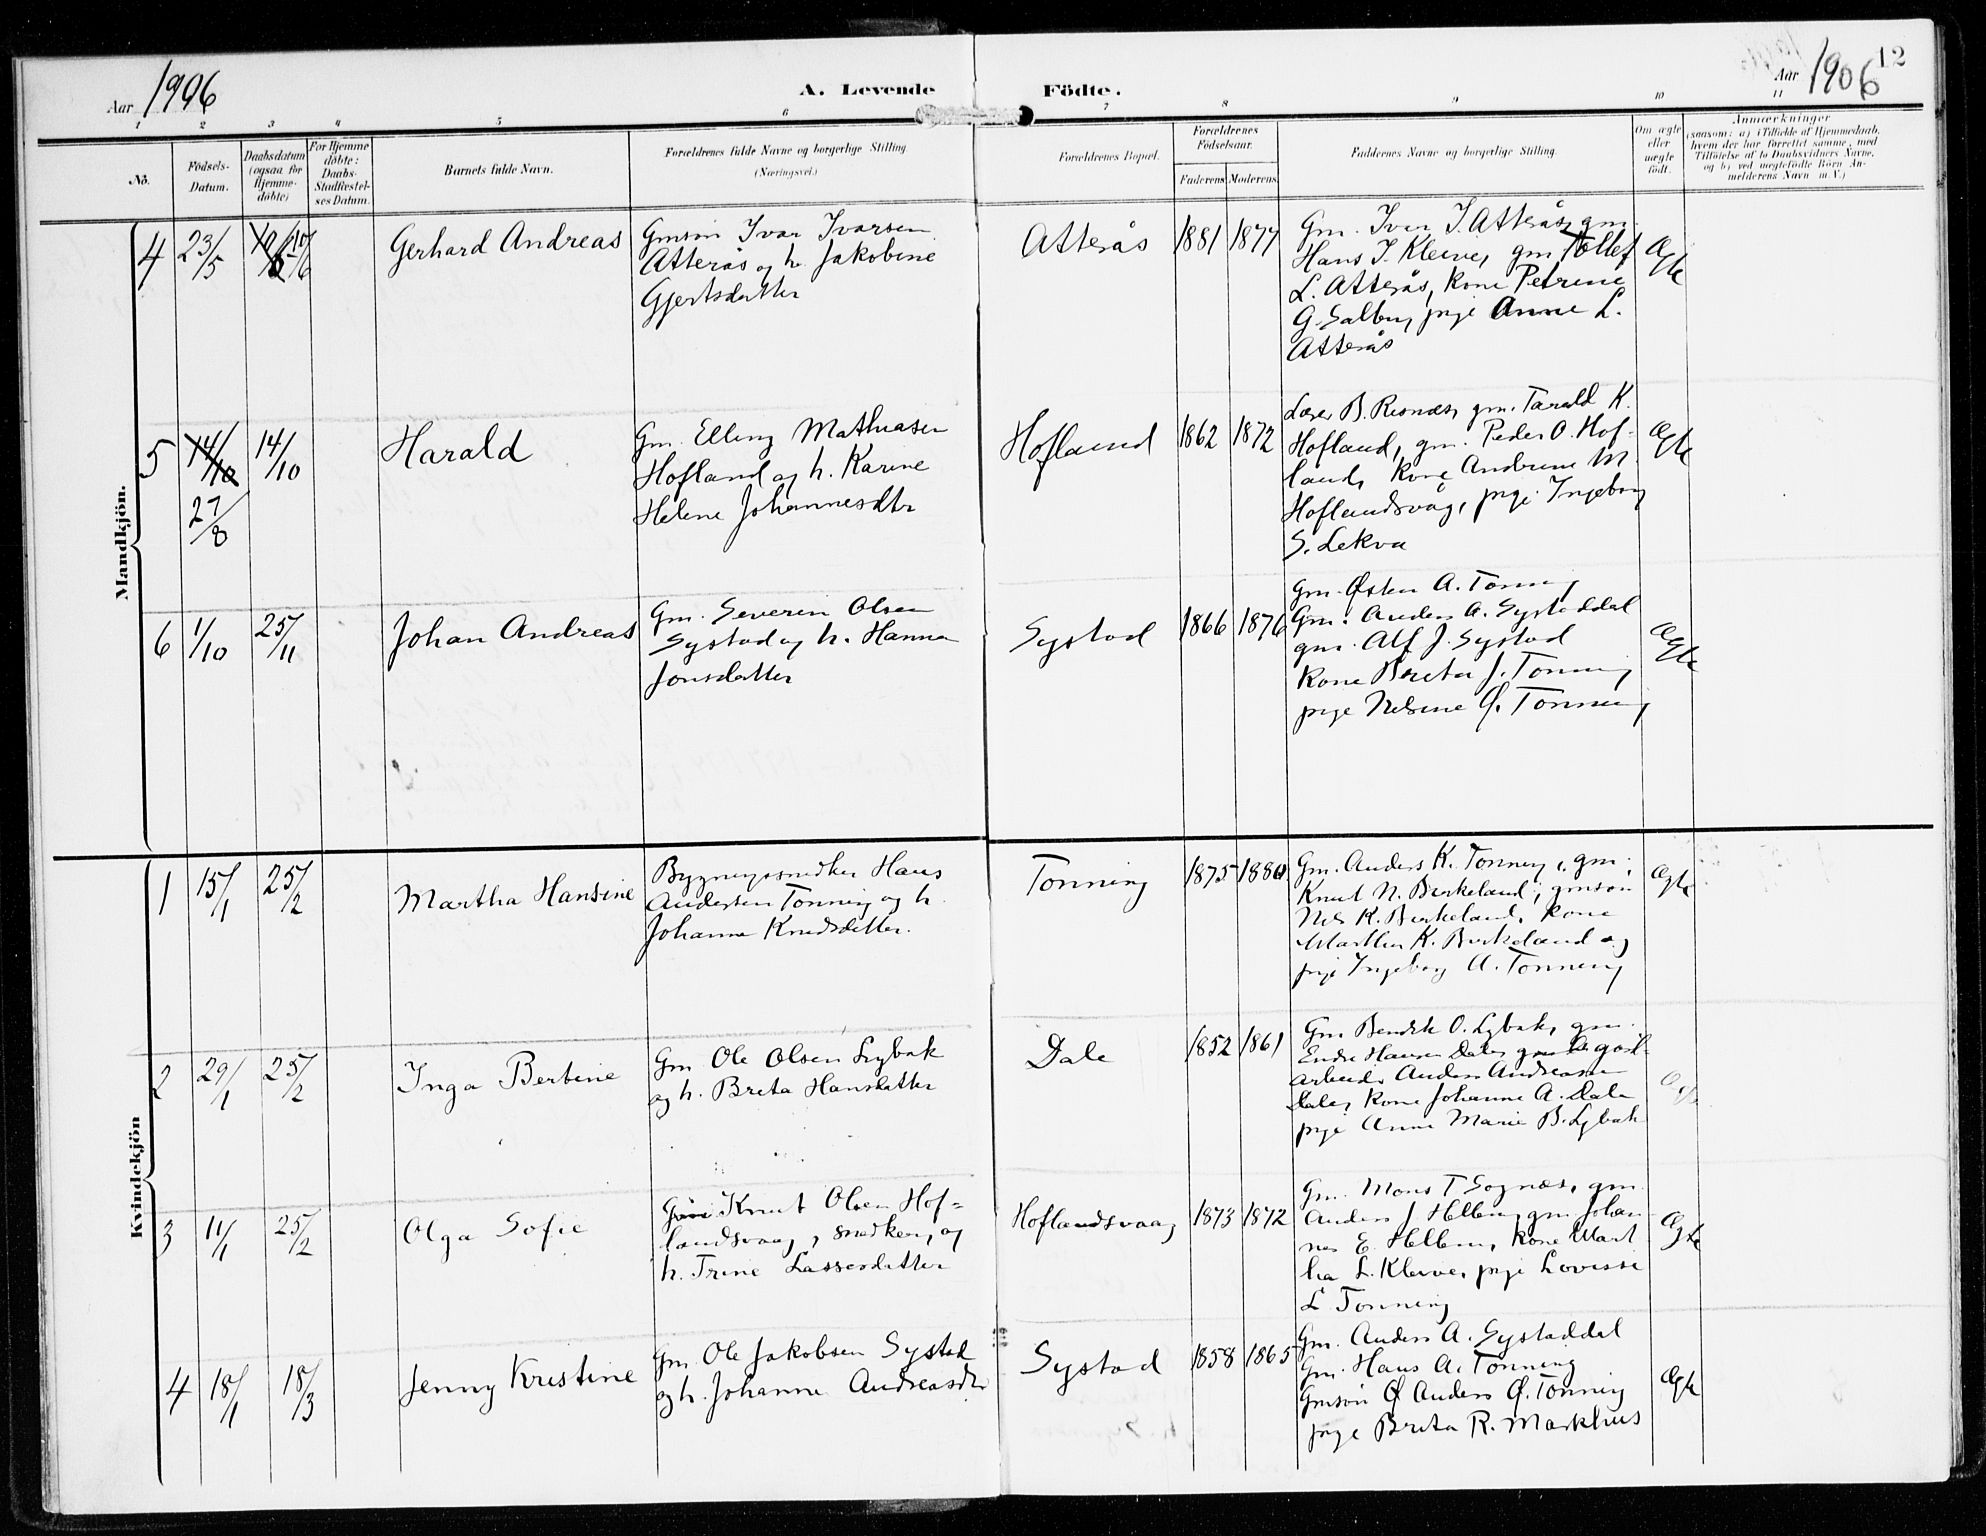 Aar 1906
A. Levende Födte.
Aar 1906 12
1 2 3 4 5 6 7 8 9 10 11
No.
Födsels-
Datum.
Daabsdatum
(ogsaa for
Hjemme-
döbte)
For Hjemme
döbte:
Daabs-
Stadfæstel-
ses Datum.
Barnets fulde Navn.
Forældrenes fulde Navne og borgerlige Stilling.
(Næringsvei.)
Forældrenes Bopæl.
Forældrenes
Födselsaar.
Faderens Moderens
Faddernes Navne og borgerlige Stilling.
Om ægte
eller
uægte
födt.
Anmærkninger
(saasom: a) i Tilfælde af Hjemmedaab,
hvem der har forrettet samme, med
Tilföielse af to Daabsvidners Navne,
og b) ved uegtefödte Börn An-
melderens Navn m. V.)
Mandkjön.
4 23/5 10/6
Gerhard Andreas
Gmsön Ivar Ivarsen
Atterås og h. Jakobine
Gjertsdatter
Atterås
1881 1877
Gm. Iver I. Atterås, gm.
Hans J. Kleive, gm Tollef
L. Atterås, kone Petrine
G. Salbu, pige Anne L.
Atterås
Ægte
5 14/10 14/10
27/8
Harald
Gm. Elling Mathiasen
Hofland og h. Karine
Helene Johannesdtr
Hofland
1862 1872
Lærer B. Risnæs, gm. Tarald K.
Hofland, gm. Peder O. Hof-
land, kone Andrine M.
Hoflandsvåg, pige Ingeborg
S. Lekva
Ægte
6 1/10 25/11
Johan Andreas
Gm. Severin Olsen
Systad og h. Hanna
Jonsdatter
Systad
1866 1876
Gm. Østen A. Tonning
Gm. Anders A. Systaddal
gm. Alf J. Systad
kone Breta J. Tonning
pige Nelsine Ø. Tonning
Ægte
Kvindekjön
1 15/1 25/2
Martha Hansine
Bygningssnedker Hans
Andersen Tonning og h.
Johanne Knudsdatter.
Tonning
1875 1880
Gm. Anders K. Tonning, gm.
Knut N. Birkeland, gmsön
Nils K. Birkeland, kone
Martha K. Birkeland og
pige Ingeborg A. Tonning
Ægte
2 29/1 25/2
Inga Bertine
Gm Ole Olsen Lybak
og h. Breta Hansdatter
Dale
1852 1861
Gm Bendik O. Lybak, gm.
Endre Hansen Dale,
arbeider Anders Andreasen
Dale, kone Johanne A. Dale
pige Anne Marie B. Lybak
Ægte
3 11/1 25/2
Olga Sofie
Knut Olsen Hof-
landsvaag, snedker, og
h. Trine Lassesdatter
Hoflandsvaag
1873 1872
Gm. Mons T Sognæs, gm
Anders J Hellen, gm Johan
nes E. Hellen, kone Mart
ha L. Kleive, pige Lovisse
L. Tonning
Ægte
4 18/1 18/3
Jenny Kristine
Gm Ole Jakobsen Systad
og h. Johanne Andreasdtr
Systad
1858 1865
Gm. Anders A. Systaddal
Gm. Hans A. Tonning
Gmsön Anders Ø. Tonning
pige Breta R. Markhus
Ægte